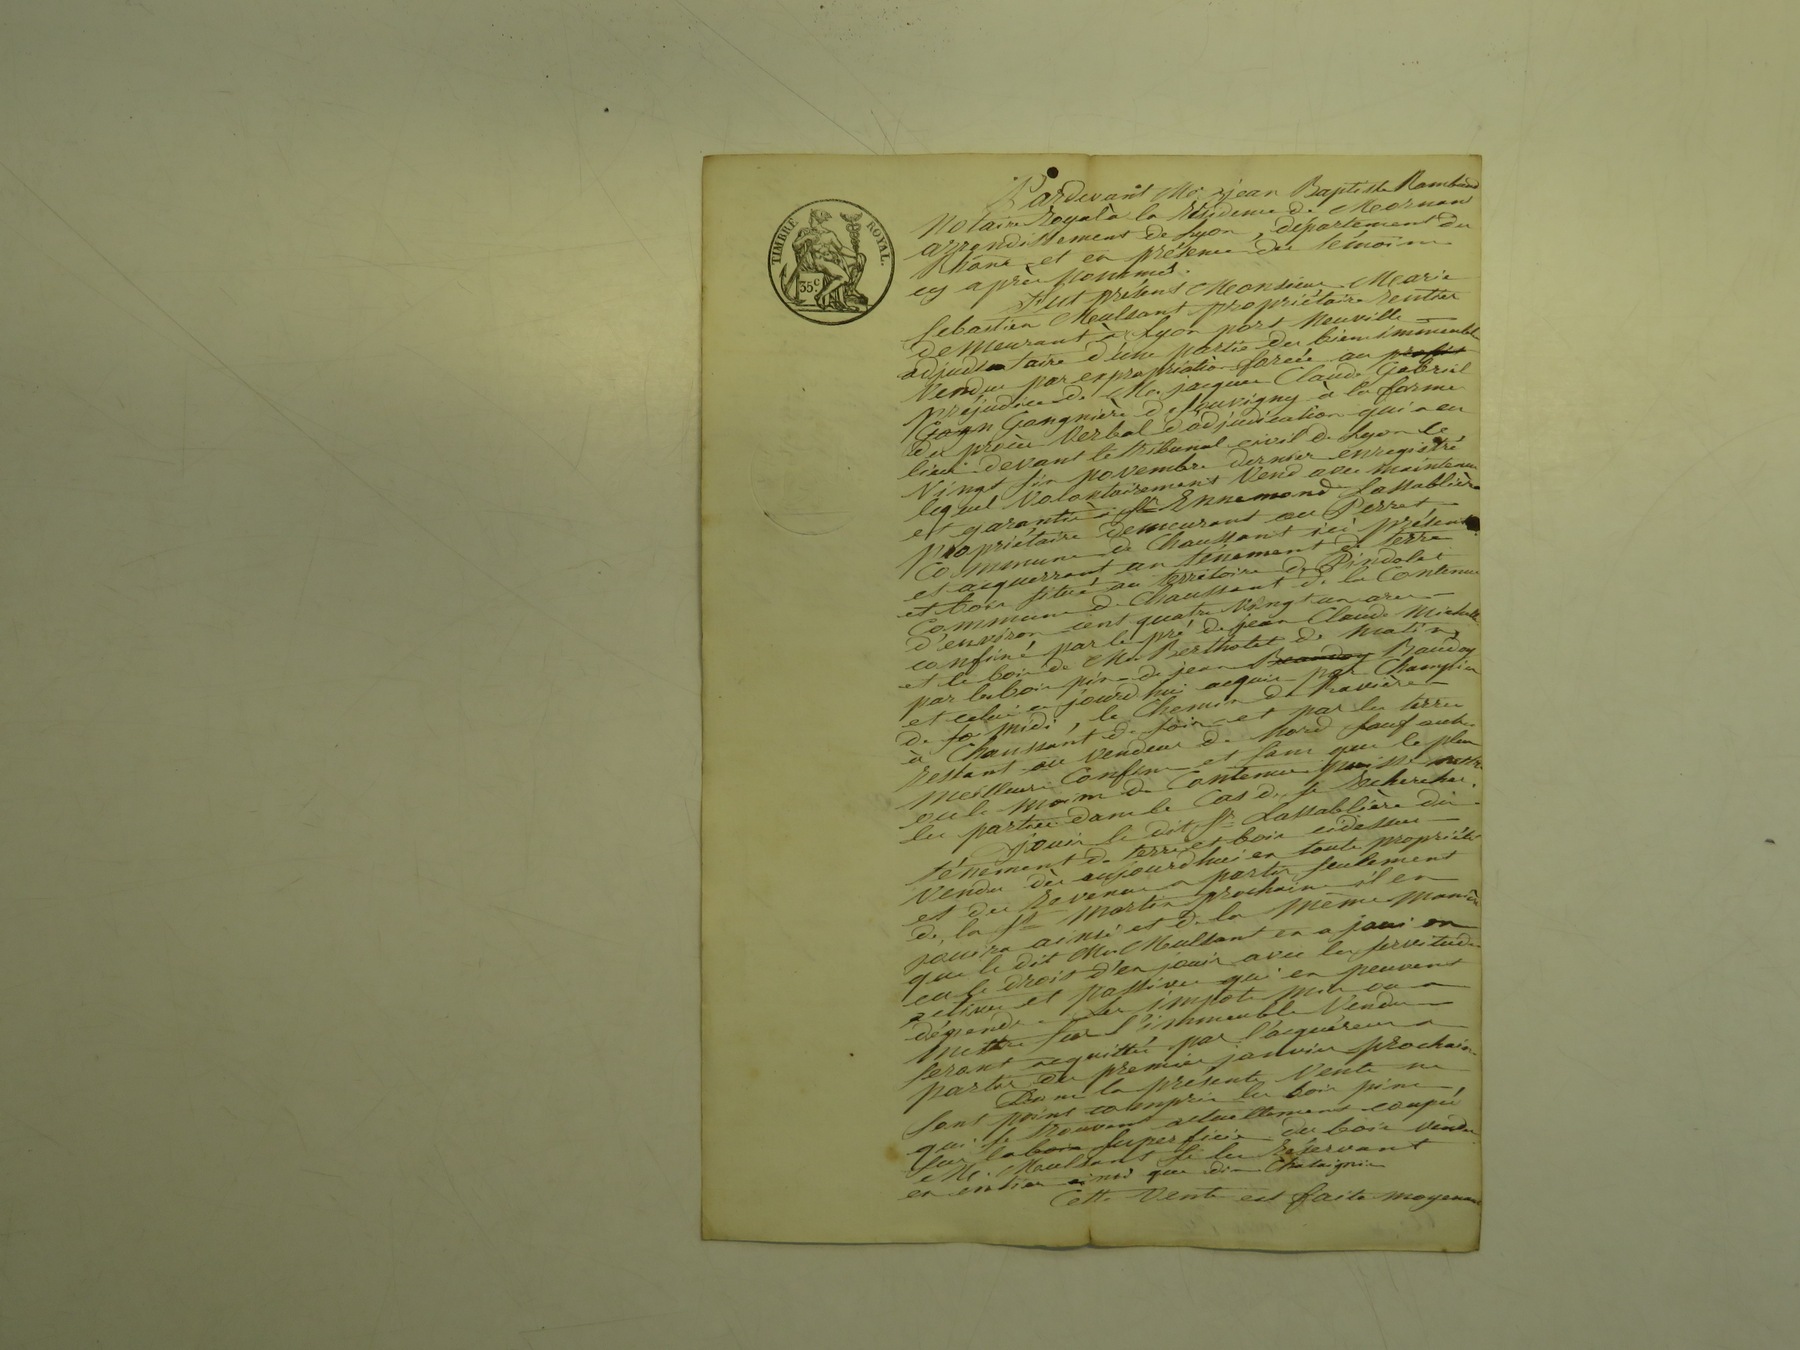 TIMBRE ROYAL.
35 c
Pardevant Me jean Baptiste Rambaud
Notaire Royal à la Résidence de Mornant
arrondissement de Lyon, département du
Rhône et en présence des témoins
cy après nommés.
Fut présent Monsieur Marie
Sebastien Meulsant propriétaire rentier
demeurant à Lyon port Neuville
adjudicataire d'une partie des biens immeubles
Vendus par expropriation forcée au profit
préjudice de Mr jacques Claude Gabriel
Gangnière de Souvigny à la forme
du procès Verbal d'adjudication qui a eu
lieu devant le tribunal civil de Lyon le
Vingt six novembre dernier enregistré
lequel Volontairement Vend avec maintenue
et garantie à Sr Ennemond Lassablière
propriétaire demeurant au Perret
Commune de Chaussant ici présent
et acquerrant un ténement de terre
et bois situé au territoire de Pindolet
Commune de Chaussant de la Contenue
d'environ cent quatre vingt un ares
confiné par le pré de jean Claude Michel
et le bois de Mr Bertholet de matin,
par les bois pins de jean Baudoy
et celui aujourd'hui acquis par Champin
de midi, le Chemin de Ravières
à Chaussant de soir et par les terres
restant au vendeur de Nord sauf autres
meilleurs Confins et sans que le plus
ou le moins de Contenue puisse mettre
les parties dans le Cas de se rechercher.
jouir le dit Sr Lassablière du
ténement de terre et bois cidessus
Vendu dès aujourd'hui en toute propriété
et des revenus a partir seulement
de la St Martin prochaine s'il en
jouira ainsi et de la même manière
que le dit Mr Meulsant en a joui ou
eu le droit d'en jouir avec les servitudes
actives et passives qui en peuvent
dépendre. Les impots mis ou a
mettre sur l'immeuble Vendu
seront acquittés par l'acquéreur a
partir du premier janvier prochain.
Dans la présente Vente ne
sont point compris les bois pins,
qui se trouvent actuellement coupés
sur la bois superficie du bois vendu
Mr. Meulsant se les réservant
en entier ainsi que dix Chataigniers
Cette Vente est faite moyennant